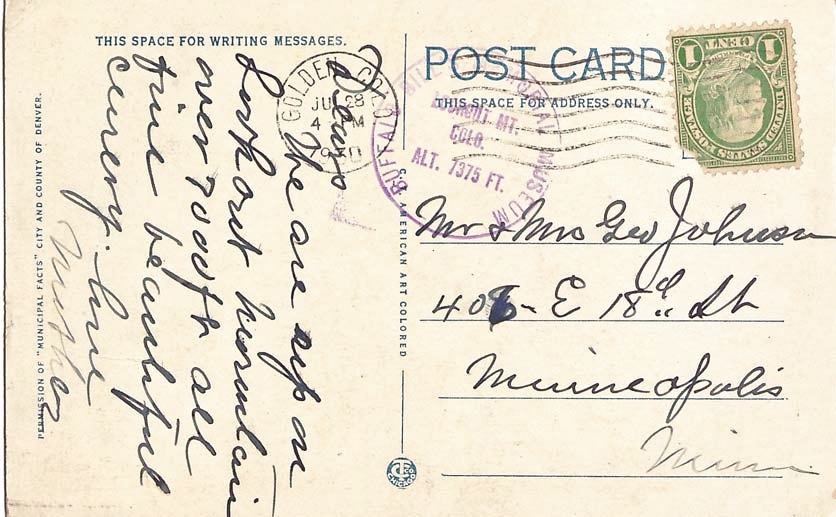 THIS SPACE FOR WRITING MESSAGES.
Dears
We are up on
Lookout Mountain
over 7000 ft all
fine beautiful
cenery. love
Mother
PERMISSION OF "MUNICIPAL FACTS" CITY AND COUNTY OF DENVER.
GOLDEN COLO.
JUL 28
4 PM
1930
C.T. AMERICAN ART COLORED
POST CARD
THIS SPACE FOR ADDRESS ONLY.
BUFFALO BILL MEMORIAL MUSEUM
LOOKOUT MT.
COLO.
ALT. 7375 FT.
1 CENT 1
UNITED STATES POSTAGE
Mr & Mrs Geo Johnson
406 - E 18th St
Minneapolis
Minn
CT
CHICAGO